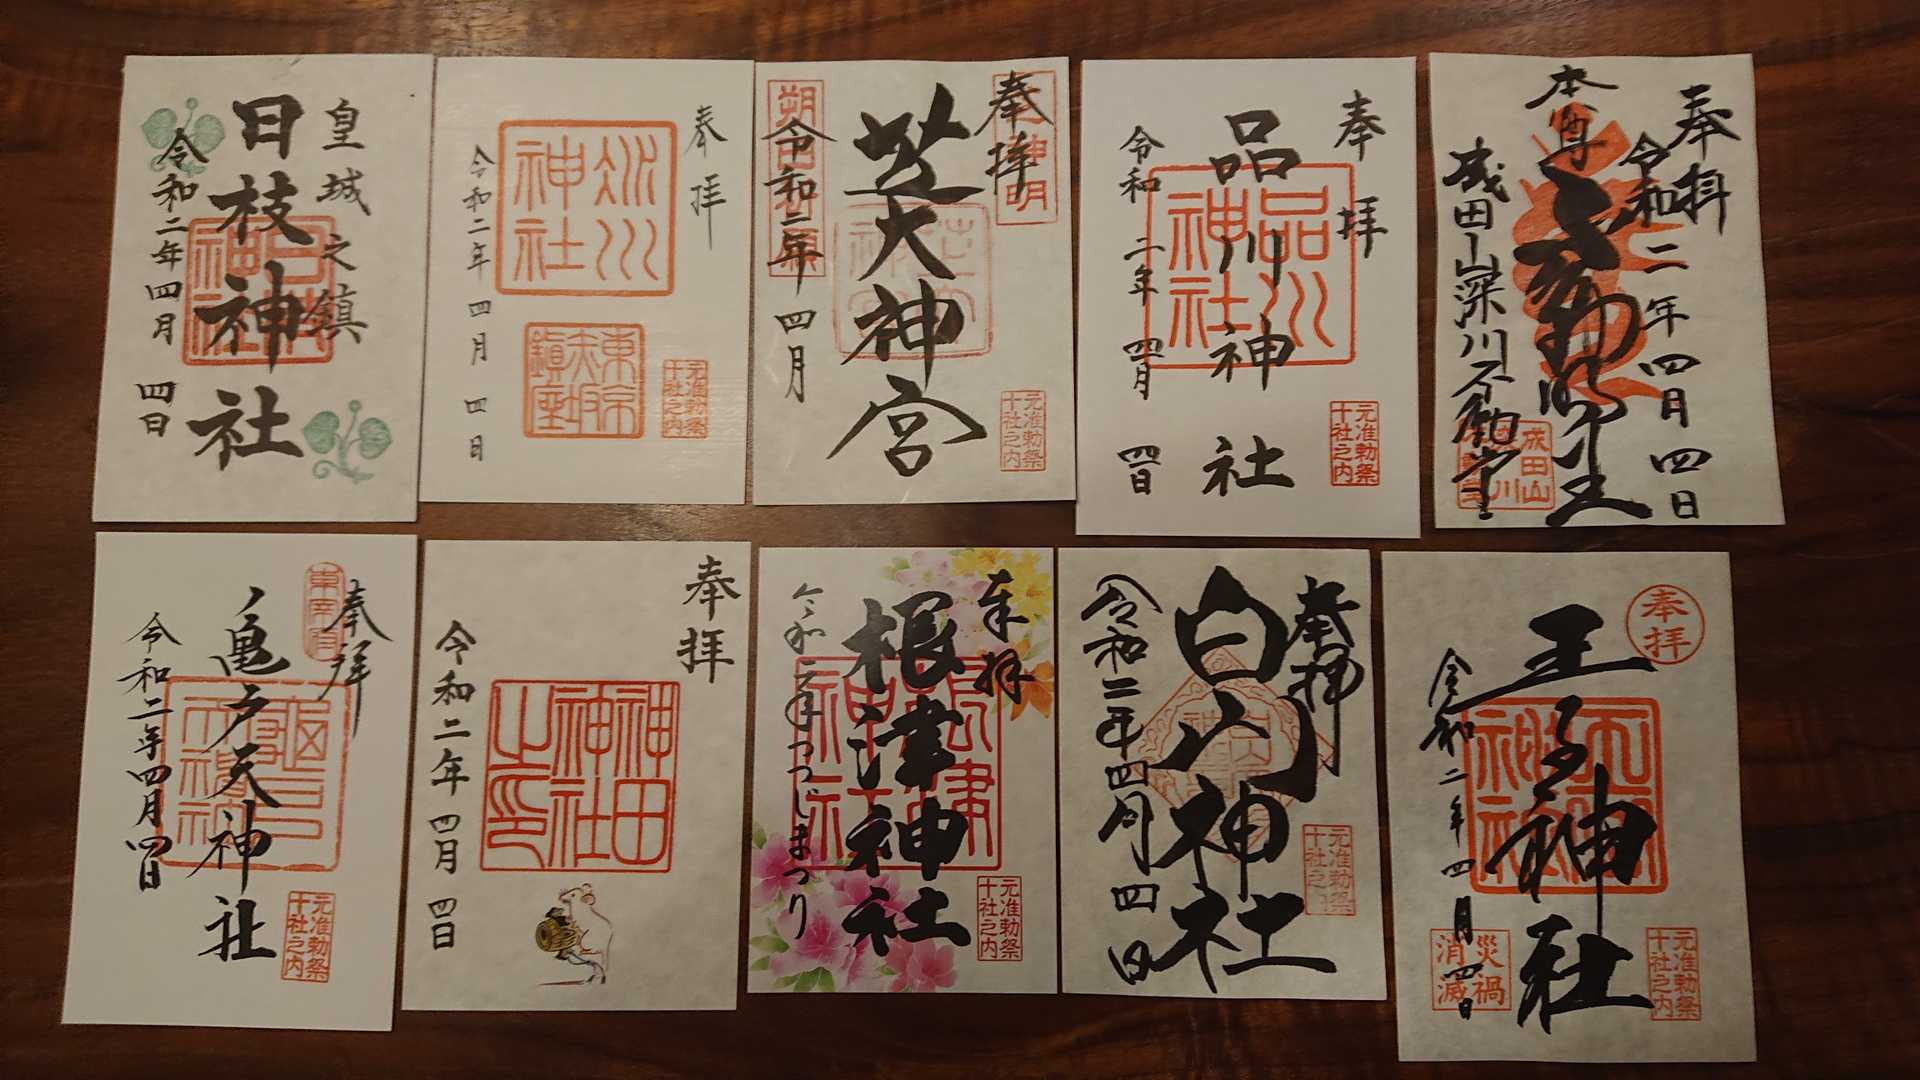 皇城之鎮
日枝神社
令和二年四月四日
奉拝
氷川神社
令和二年四月四日
東京赤坂鎮座
元准勅祭
十社之内
奉拝
芝大神宮
令和二年四月
元准勅祭
十社之内
奉拝
品川神社
品川神社
令和二年四月四日
元准勅祭
十社之内
奉拝
令和二年四月四日
本尊不動明王
成田山深川不動堂
成田山
奉拝
東宰府
亀戸天神社
令和二年四月四日
元准勅祭
十社之内
奉拝
神田
神社
之印
令和二年四月四日
奉拝
根津神社
令和二年つつじまつり
元准勅祭
十社之内
奉拝
白山神社
令和二年四月四日
元准勅祭
十社之内
奉拝
王子神社
令和二年四月四日
災禍
消滅
元准勅祭
十社之内